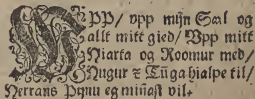 UPP/ vpp mijn Sæl og
allt mitt gied/ Vpp mitt
Hiarta og Roomur med/
Hugur ⁊ Tūga hialpe til/
Herrans Pijnu eg minast vil.